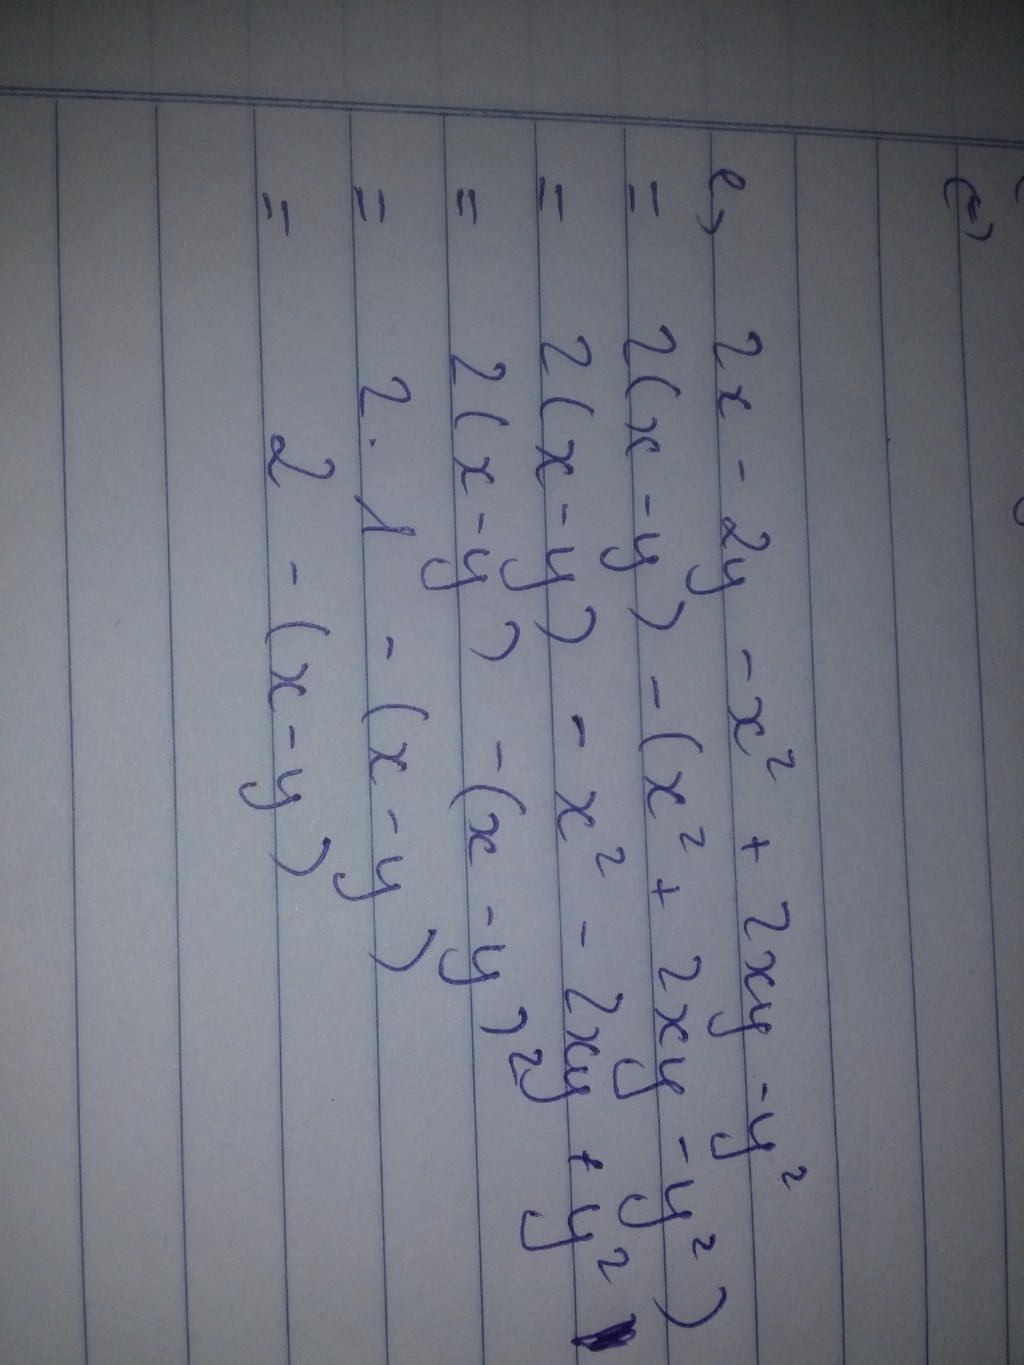 e, 2x - 2y - x² + 2xy - y²
= 2(x - y) - (x² + 2xy - y²)
= 2(x - y) - x² - 2xy + y²
= 2(x - y) - (x - y)²
= 2 . 1 - (x - y)
= 2 - (x - y)